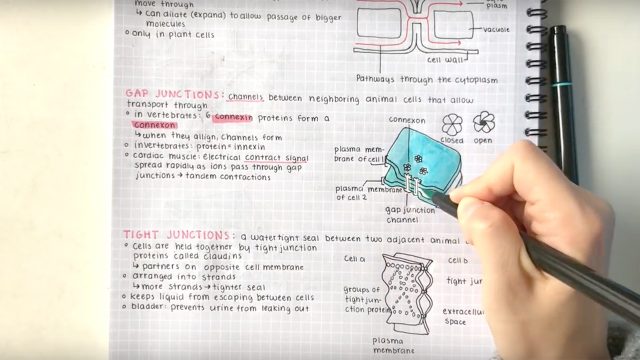 move through
↳ can dilate (expand) to allow passage of bigger
molecules
o only in plant cells
plasm
vacuole
cell wall
Pathways through the cytoplasm
GAP JUNCTIONS: channels between neighboring animal cells that allow
transport through
o in vertebrates: 6 connexin proteins form a
connexon
↳ when they allign, channels form
o invertebrates: protein = innexin
o cardiac muscle: electrical contract signal
spread rapidly as ions pass through gap
junctions → tandem contractions
connexon
closed
open
plasma mem-
brane of cell
plasma membrane
of cell 2
gap junction
channel
TIGHT JUNCTIONS: a watertight seal between two adjacent animal
o cells are held together by tight junction
proteins called claudins
↳ partners on opposite cell membrane
o arranged into strands
↳ more strands → tighter seal
o keeps liquid from escaping between cells
o bladder: prevents urine from leaking out
cell a
cell b
groups of
tight junc-
tion protein
tight jun
extracellu
space
plasma
membrane